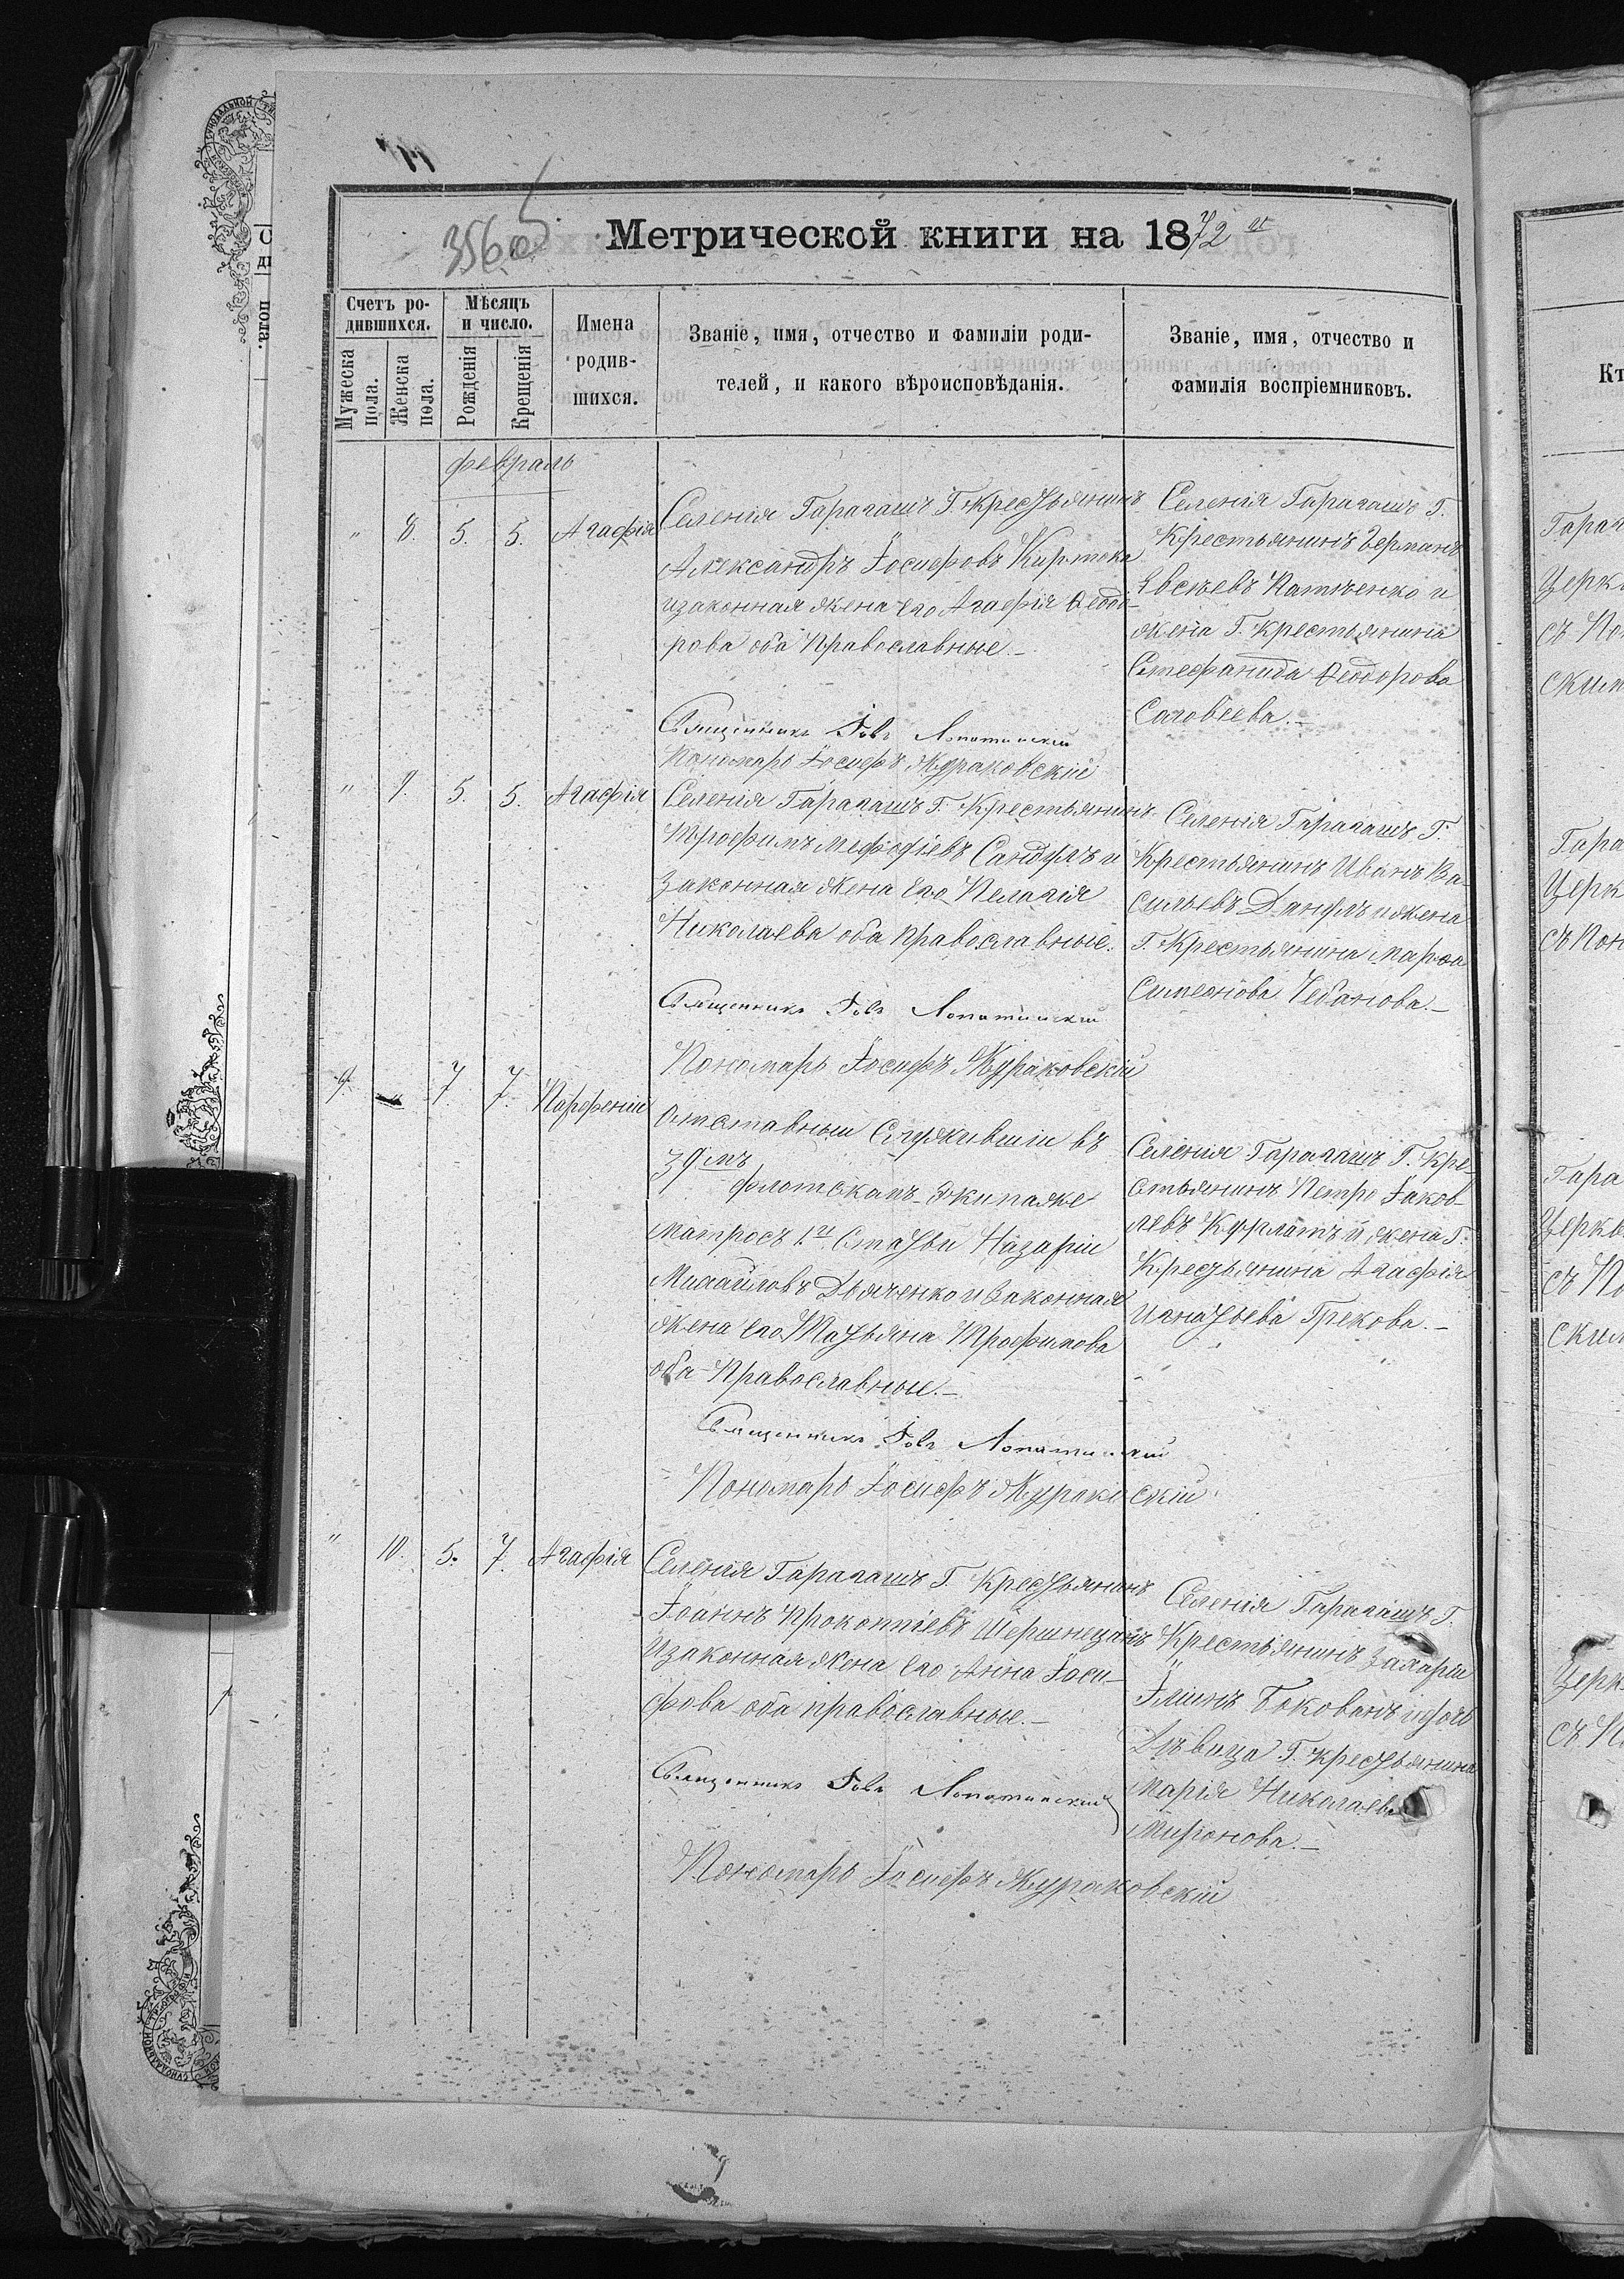 356 об
Метрической книги на 1872 г
Счетъ ро-
дившихся.
Мѣсяцъ
и число.
Имена
родив-
шихся.
Званіе, имя, отчество и фамиліи роди-
телей, и какого вѣроисповѣданія.
Званіе, имя, отчество и
фамилія воспріемниковъ.
Мужеска
пола.
Женска
пола.
Рожденія
Крещенія
февраль
" 8. 5. 5. Агафія
Селенія Гарагашъ Г. Крестьянинъ
Александръ Іосифовъ Киртока
и законная жена его Агафія Ѳеодо-
рова оба Православные.-
Священникъ Іовъ Лопатинскій
Пономарь Іосифъ Жураковскій
Селенія Гарагашъ Г.
Крестьянинъ Германъ
Евсѣевъ и
жена Г. Крестьянина
Стефанида Ѳеодорова
Соловеева.-
" 9. 5. 5. Агафія
Селенія Гарагашъ Г. Крестьянинъ
Трофимъ Мефодіевъ Сандулъ и
Законная жена его Пелагія
Николаева оба православные.
Священникъ Іовъ Лопатинскій
Пономарь Іосифъ Жураковскій
Селенія Гарагашъ Г.
Крестьянинъ Иванъ Ва-
сильевъ Данулъ и жена
Г. Крестьянина Марѳа
Симеонова Чебанова.-
9. " 7. 7. Парфеній
Отставный Служившій въ
39мъ
флотскамъ Экипаже
матросъ 1й Статьи Назарій
Михайловъ Дьяченко и Законная
жена его Татьяна Трофимова
оба Православные.-
Священникъ Іовъ Лопатинскій
Пономарь Іосифъ Жураковскій
Селенія Гарагашъ Г. Кре-
стьянинъ Петръ Іаков-
левъ Курлатъ и жена Г.
Крестьянина Агафія
Игнатьева Грекова.-
" 10. 5. 7. Агафія
Селенія Гарагашъ Г. Крестьянинъ
Іоаннъ Прокопіевъ Шершнецанъ
И законная жена его Анна Іоси-
фова оба православные.-
Священникъ Іовъ Лопатинскій
Пономарь Іосифъ Жураковскій
Селенія Гарагашъ Г.
Крестьянинъ Захарій
Іліинъ Боканъ и
Дѣвица Г. Крестьянина
Марія Николаева
Миронова.-